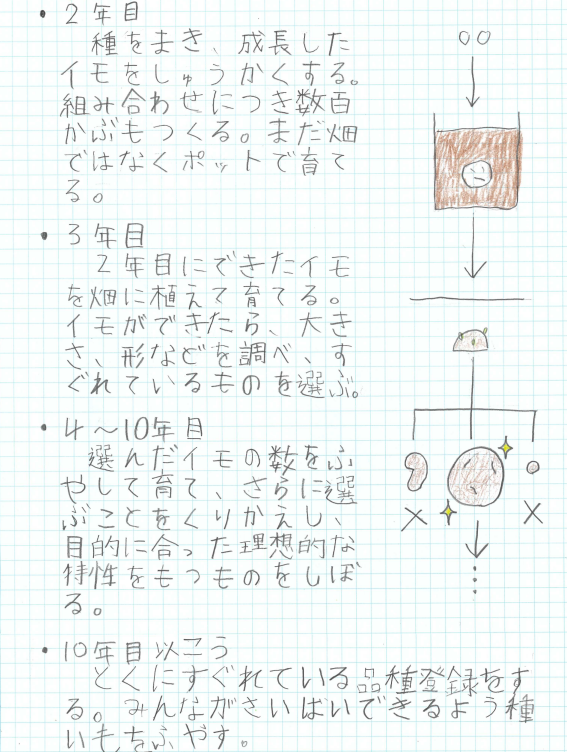 ・2年目
種をまき、成長した
イモをしゅうかくする。
組み合わせにつき数百
かぶもつくる。まだ畑
ではなくポットで育て
る。
・3年目
2年目にできたイモ
を畑に植えて育てる。
イモができたら、大き
さ、形などを調べ、す
ぐれているものを選ぶ。
・4〜10年目
選んだイモの数をふ
やして育て、さらに選
ぶことをくりかえし、
目的に合った理想的な
特性をもつものをしぼ
る。
・10年目以こう
とくにすぐれている品種登録をす
る。みんながさいばいできるよう種
いもをふやす。